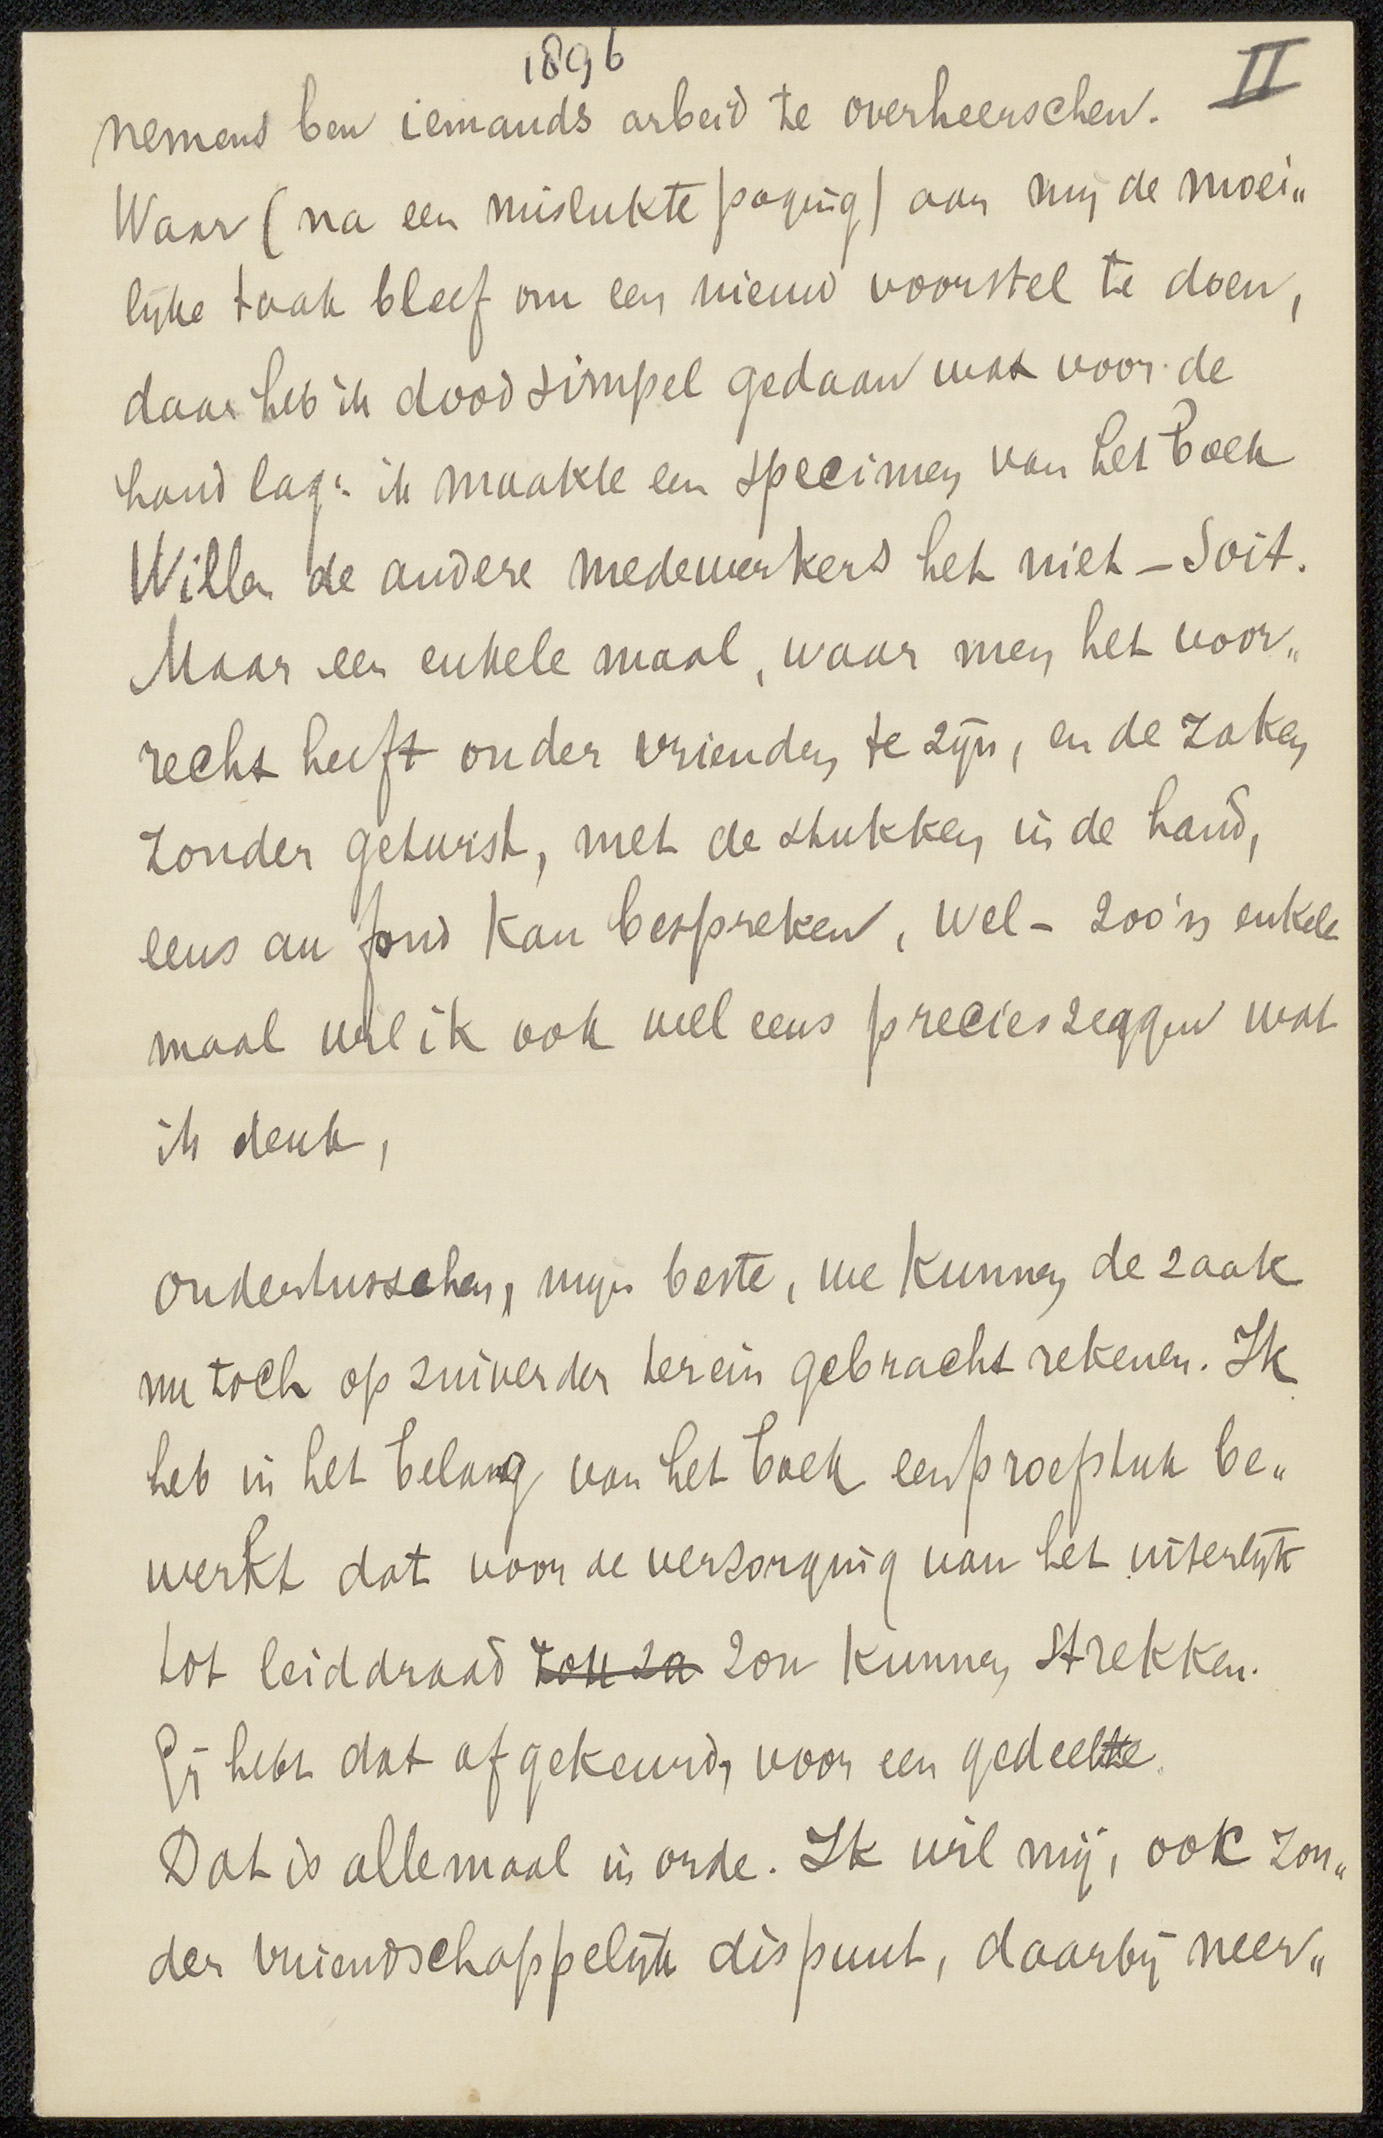 1896
II
nemens ben iemands arbeid te overheerschen.
Waar (na een mislukte poging) aan mij de moei„
lijke taak bleef om een nieuw voorstel te doen,
daar heb ik doodsimpel gedaan wat voor de
hand lag: ik maakte een specimen van het boek
Willen de andere medewerkers het niet – Soit.
Maar een enkele maal, waar men het voor„
recht heeft onder vrienden te zijn, en de zaken
zonder getwist, met de stukken in de hand,
eens au fond kan bespreken, wel – zoo'n enkele
maal wil ik ook wel eens precies zeggen wat
ik denk,
ondertusschen, mijn beste, we kunnen de zaak
nu toch op zuiverder terein gebracht rekenen. Ik
heb in het belang van het boek een proefstuk be„
werkt dat voor de verzorging van het uiterlijk
tot leiddraad zou za zou kunnen strekken.
Gij hebt dat afgekeurd, voor een gedeelte.
Dat is allemaal in orde. Ik wil mij, ook zon„
der vriendschappelijk dispuut, daarbij neer„